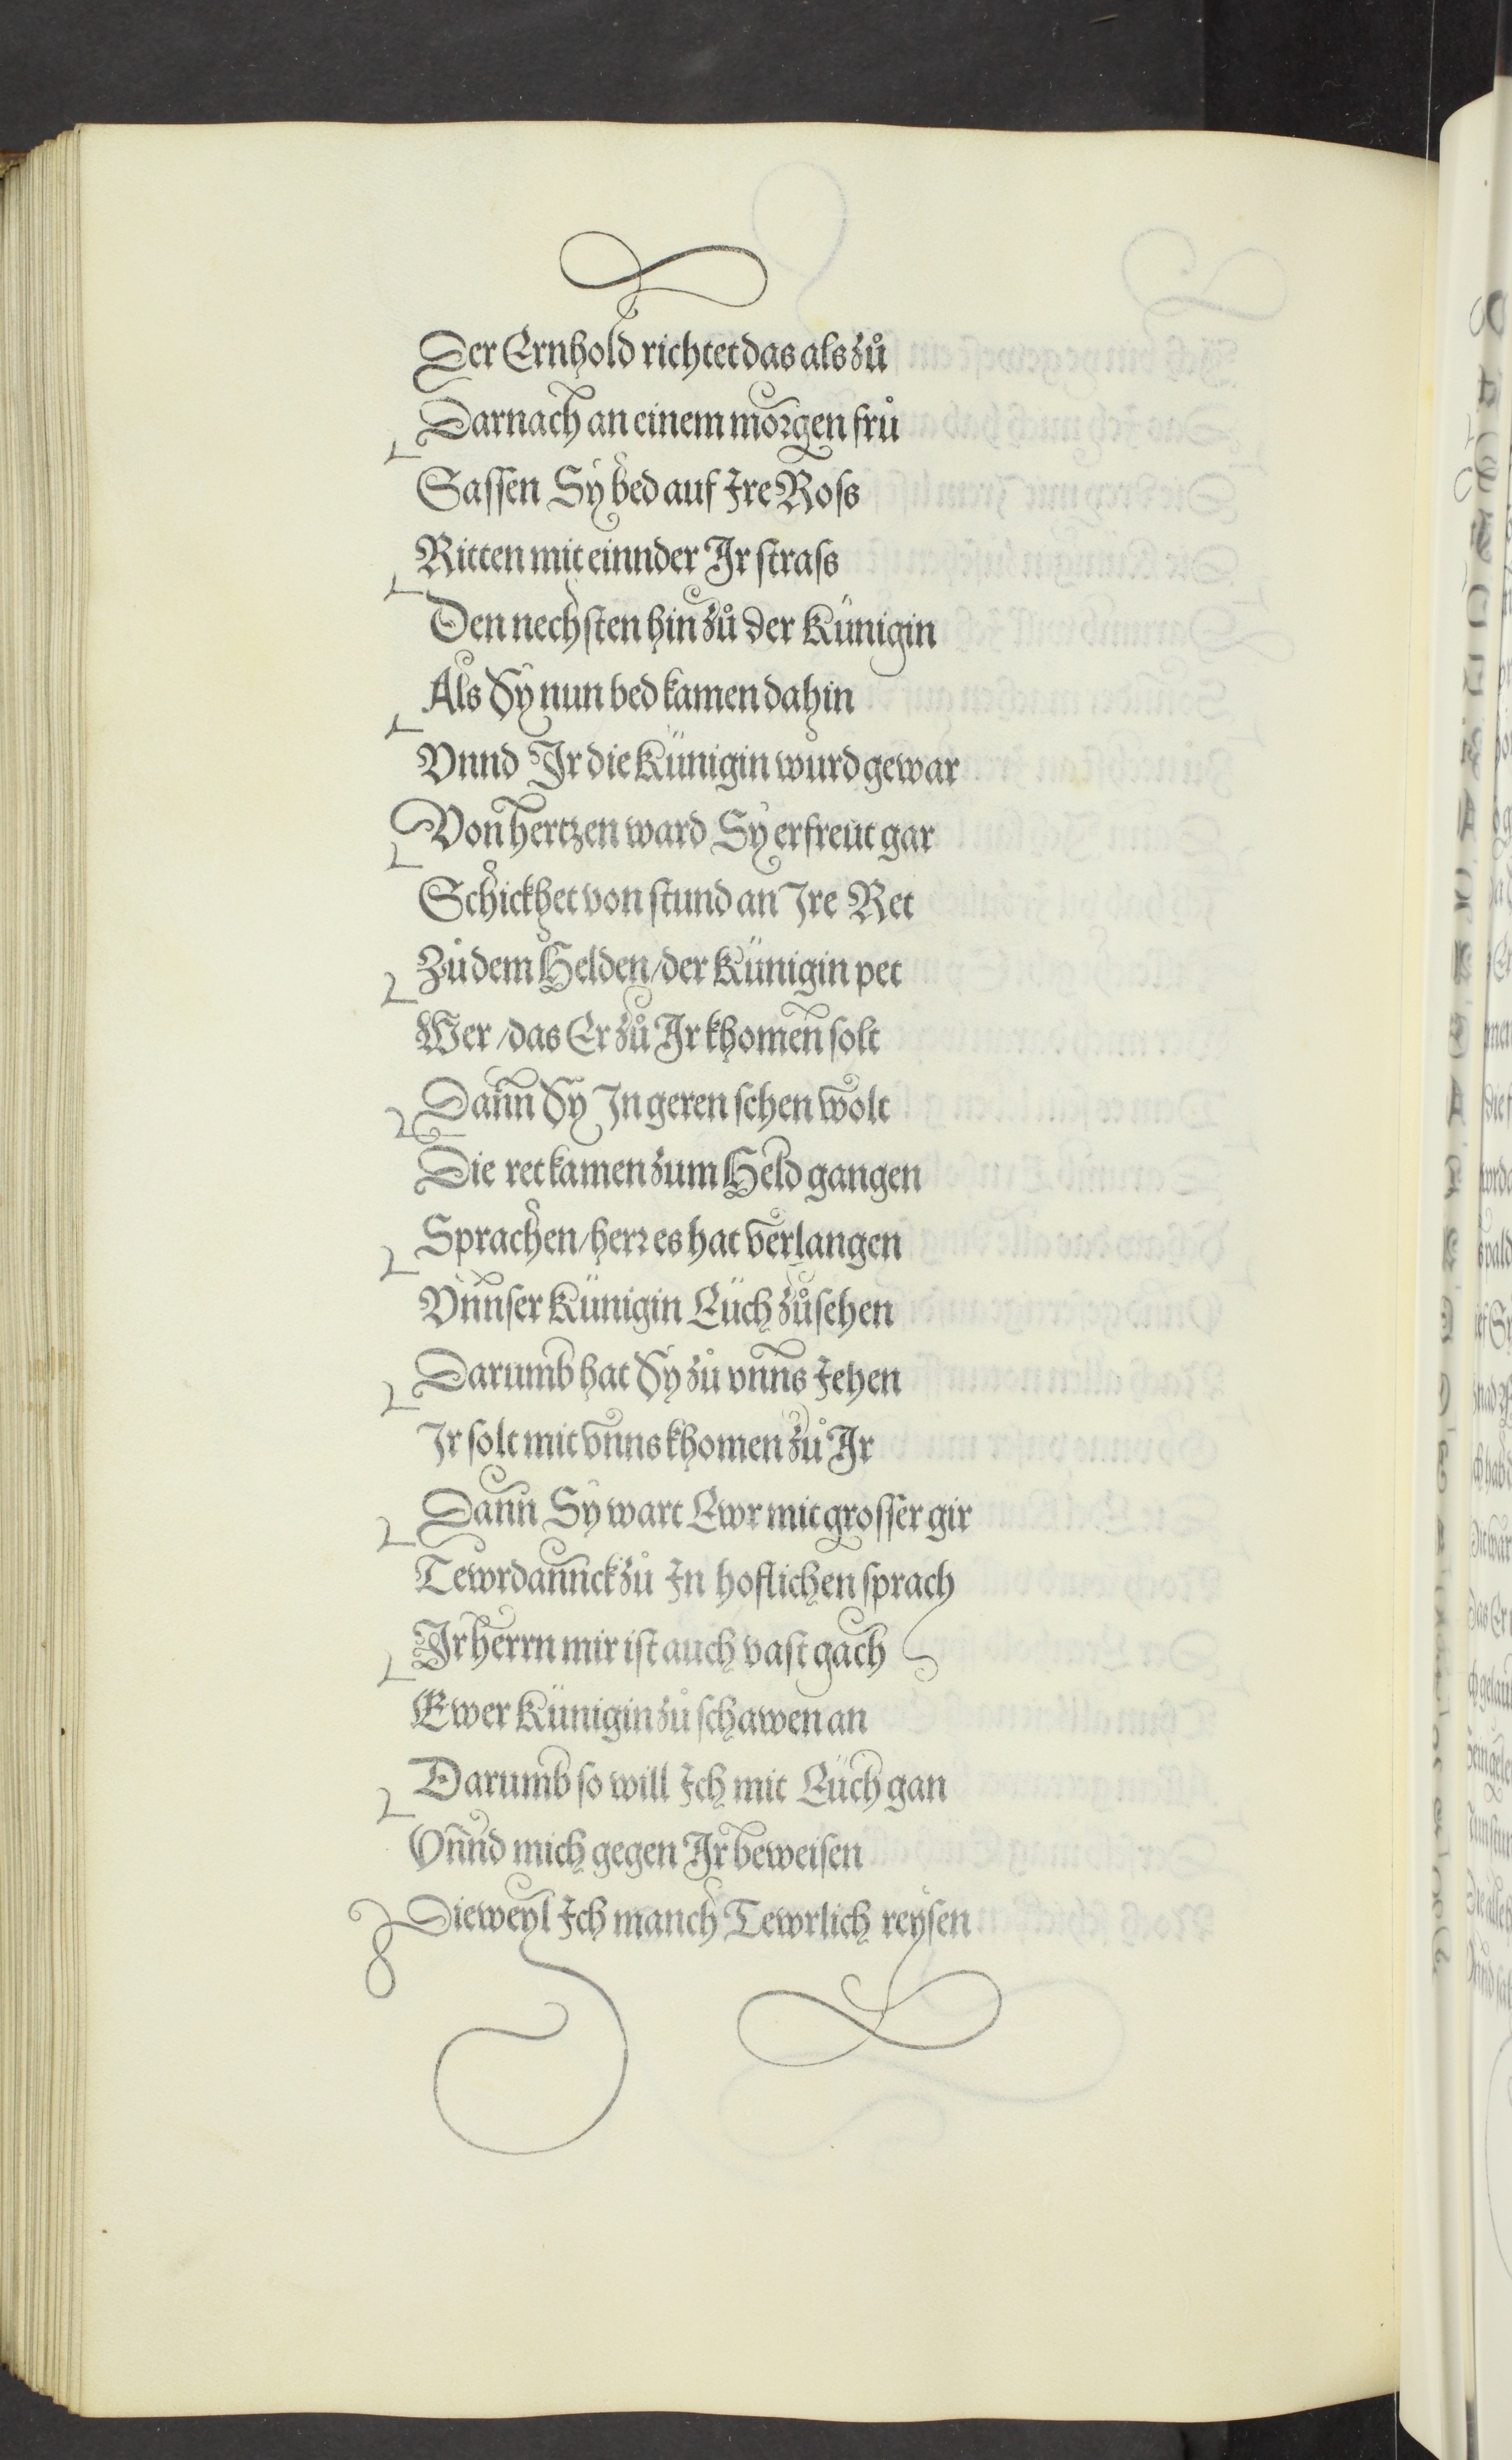 Der Ernhold richtet das als zů
Darnach an einem morgen frů
Sassen Sy bed auf Ire Roſs
Ritten mit einnder Ir ſtraſs
Den nechſten hin zů der Künigin
Als Sy nun bed kamen dahin
Vnnd Ir die Künigin wurd gewar
Von hertzen ward Sy erfreüt gar
Schickhet von ſtund an Ire Ret
Zů dem Helden / der Künigin pet
Wer / das Er zů Ir khomen ſolt
Dann Sy In geren ſehen wolt
Die ret kamen zum Held gangen
Sprachen / herr es hat verlangen
Vnnſer Künigin Eüch zů ſehen
Darumb hat Sy zů vnns Jehen
Ir ſolt mit vnns khomen zů Ir
Dann Sy wart Ewr mit groſſer gir
Tewrdannck zů In hoflichen ſprach
Ir herrn mir iſt auch vaſt gach
Ewer Künigin zů ſchawen an
Darumb ſo will Ich mit Eüch gan
Vnnd mich gegen Ir beweiſen
Dieweyl Ich manch Tewrlich reyſen